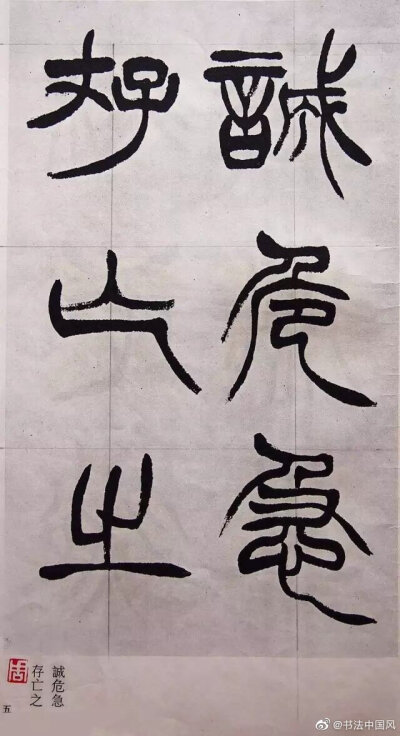 誠危急
存亡之
誠危急
存亡之
五
@书法中国风